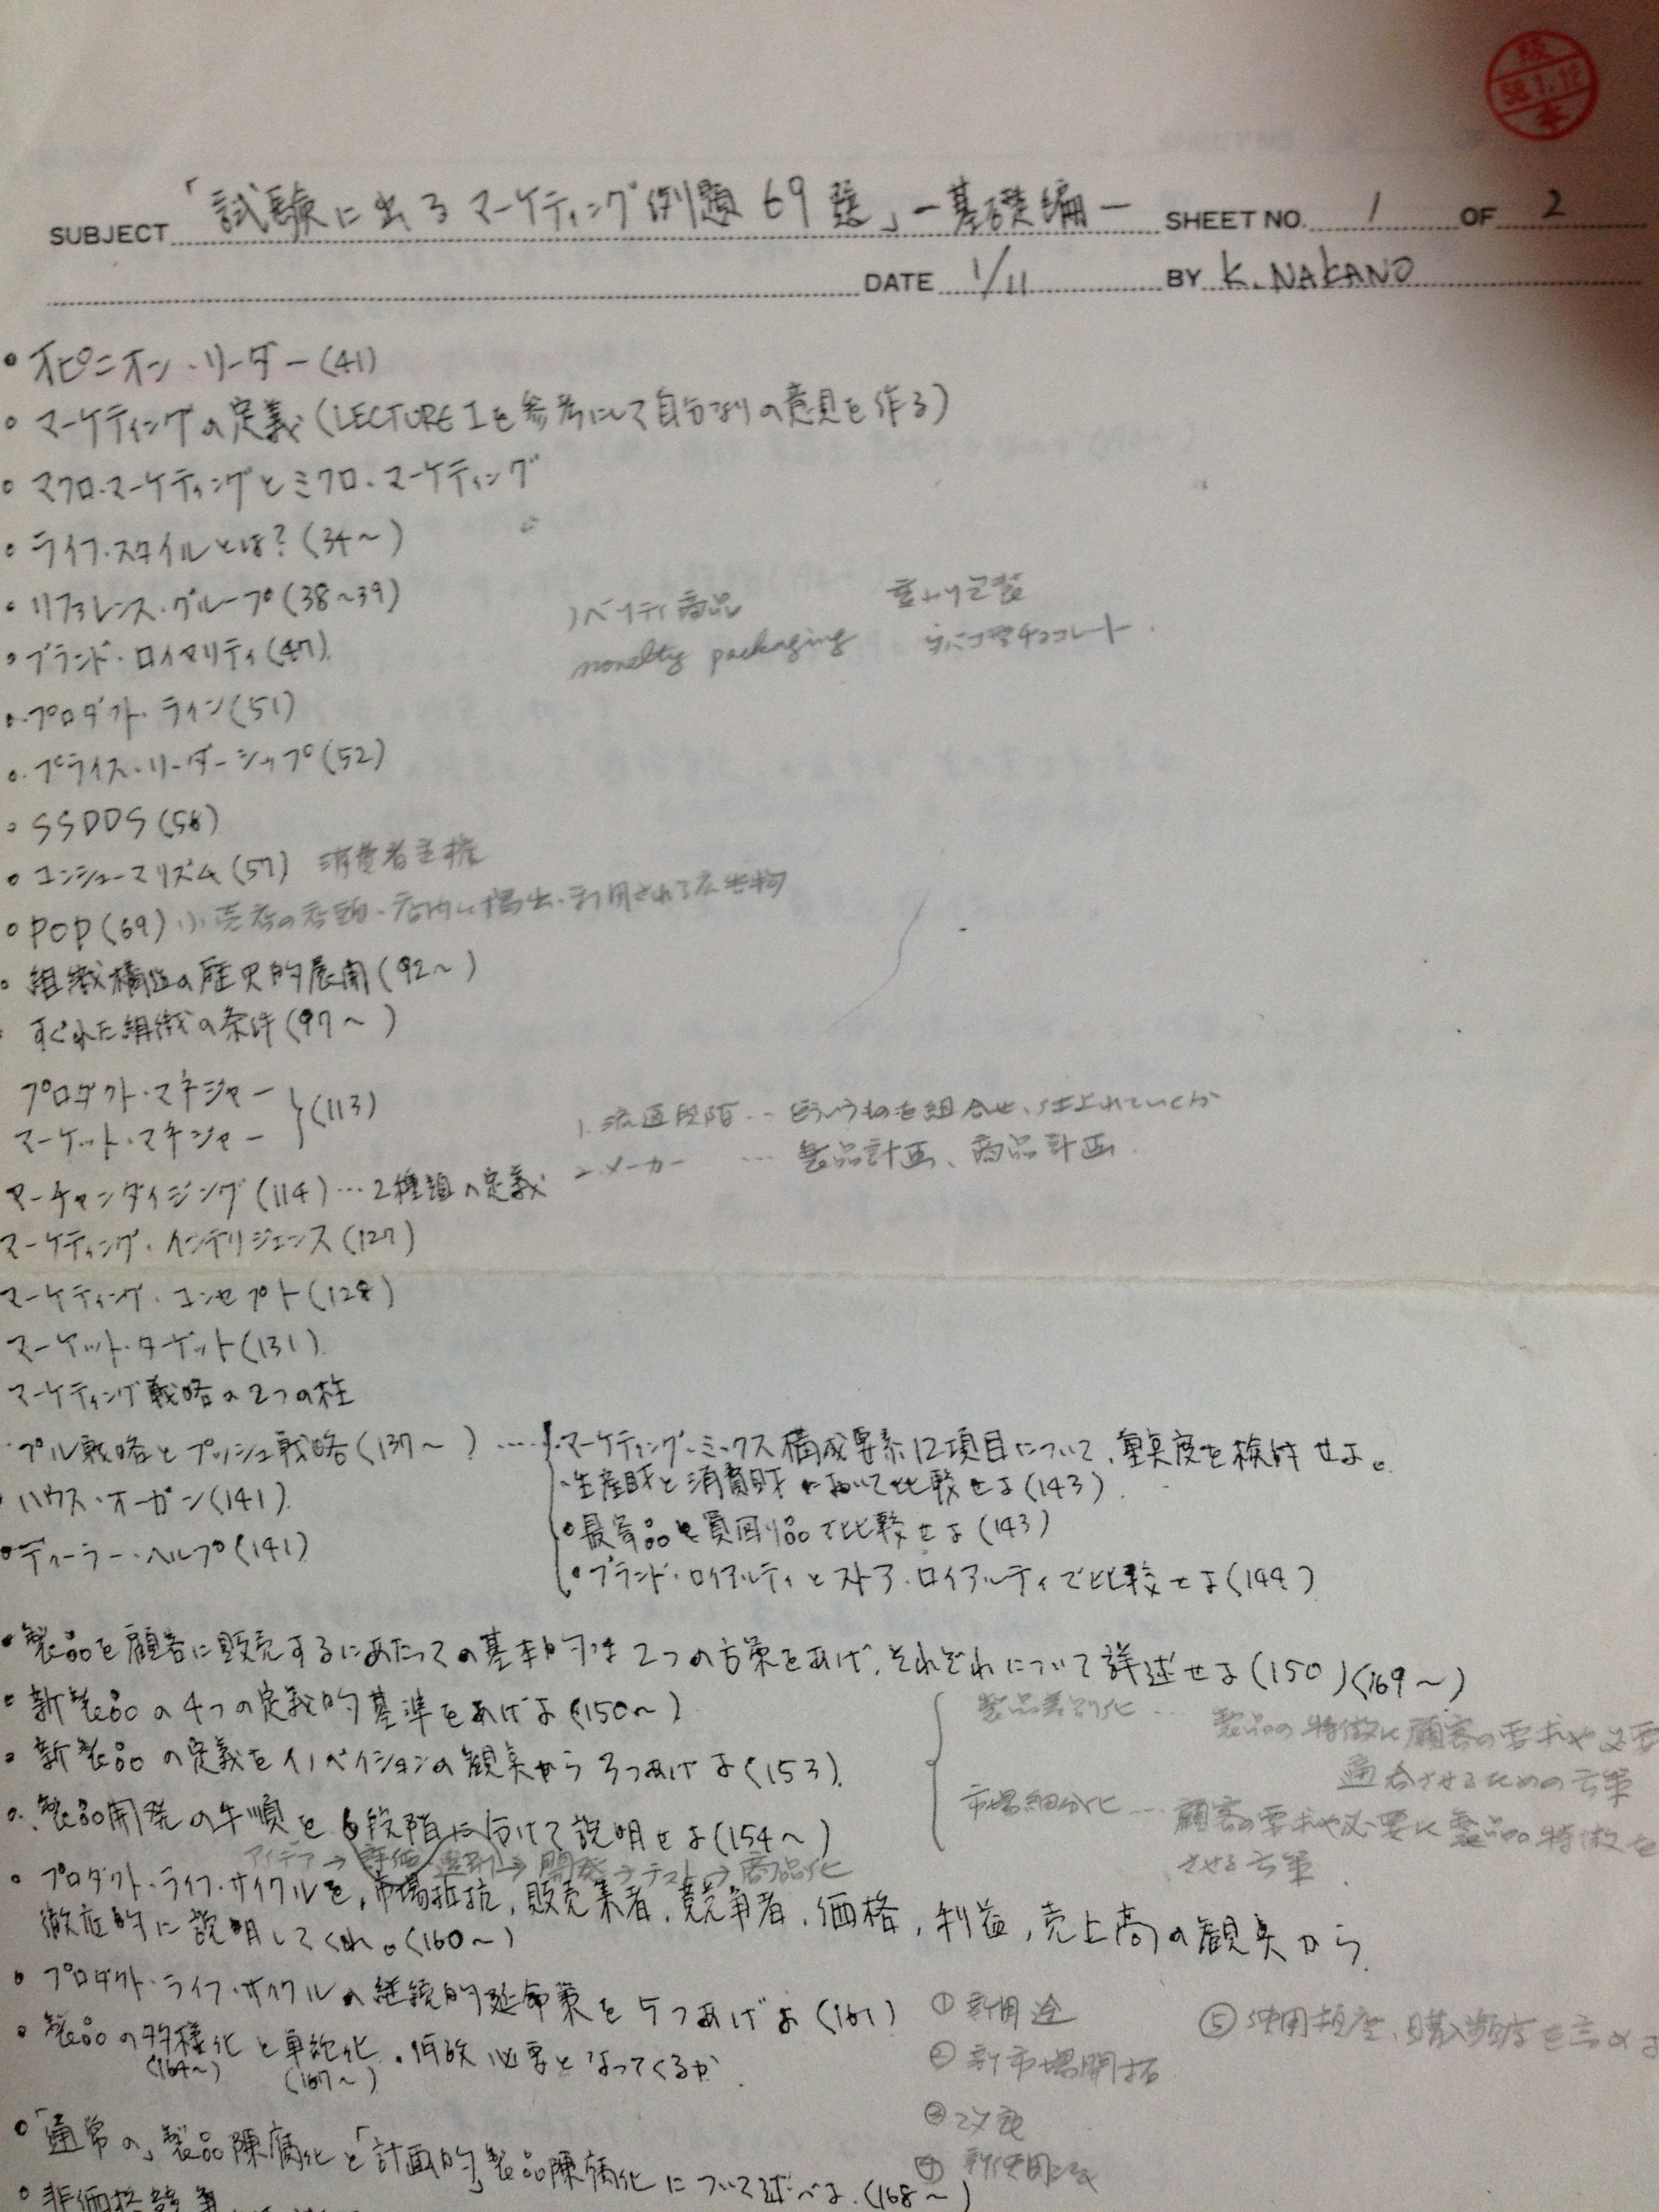 58.1.12
SUBJECT 「試験に出るマーケティング例題69選」—基礎編— SHEET NO. 1 OF 2
DATE 1/11 BY K. NAKANO
・オピニオン・リーダー(41)
・マーケティングの定義(LECTURE Iを参考にして自分なりの意見を作る)
・マクロ・マーケティングとミクロ・マーケティング
・ライフ・スタイルとは?(34〜)
・リファレンス・グループ(38〜39)
ノベルティ商品
novelty packaging チョコレート.
・ブランド・ロイヤリティ(47)
・プロダクト・ライン(51)
・プライス・リーダーシップ(52)
・SSDDS(56)
・コンシューマリズム(57) 消費者主権
・POP(69) 小売店の店頭・店内に掲出・利用される広告物
・組織構造の歴史的展開(92〜)
・すぐれた組織の条件(97〜)
プロダクト・マネジャー
マーケット・マネジャー }(113)
1. 流通段階… どういうものを組合せ、仕入れていくか
2. メーカー … 製品計画、商品計画.
マーチャンダイジング(114)…2種類の定義
マーケティング・インテリジェンス(127)
マーケティング・コンセプト(128)
マーケット・ターゲット(131)
マーケティング戦略の2つの柱
・プル戦略とプッシュ戦略(137〜)……・マーケティング・ミックス構成要素12項目について、重点度を検討せよ。
・生産財と消費財において比較せよ(143).
・ハウス・オーガン(141)
・最寄品と買回り品で比較せよ(143)
・ディーラー・ヘルプ(141)
・ブランド・ロイアルティとストア・ロイアルティで比較せよ(144)
・製品を顧客に販売するにあたっての基本的な2つの方策をあげ、それぞれについて詳述せよ(150)(169〜)
・新製品の4つの定義的基準をあげよ(150〜)
製品差別化… 製品の特徴に顧客の要求や必要
適合させるための方策
・新製品の定義をイノベイションの観点から3つあげよ(153)
市場細分化… 顧客の要求や必要に製品の特徴を
させる方策.
・製品開発の手順を6段階に分けて説明せよ(154〜)
アイデア→評価 選別→開発→テスト→商品化
・プロダクト・ライフ・サイクルを、市場抵抗、販売業者、競争者、価格、利益、売上高の観点から
徹底的に説明してくれ。(160〜)
・プロダクト・ライフ・サイクルの継続的延命策を5つあげよ(161)
① 新用途
② 新市場開拓
③ 改良
④ 新使用法
⑤ 使用頻度、購入頻度を高める
・製品の多様化と単純化.何故必要となってくるか.
(164〜) (167〜)
・「通常の」製品陳腐化と「計画的」製品陳腐化について述べよ.(168〜)
・非価格競争